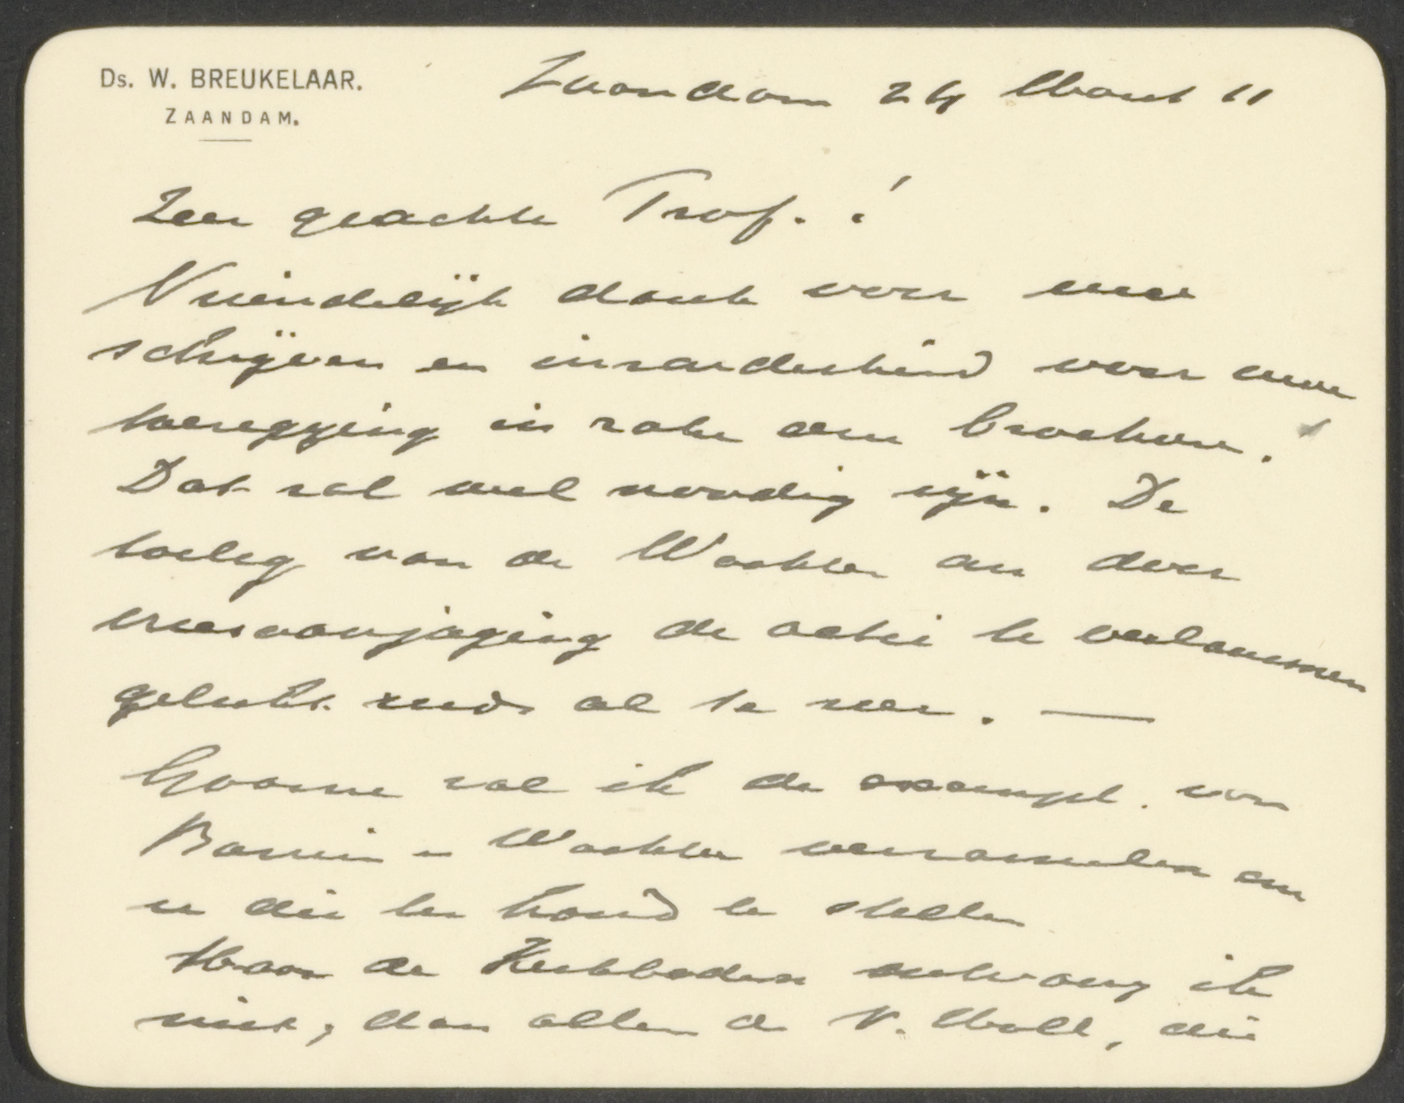 Ds. W. BREUKELAAR.
ZAANDAM.
Zaandam 24 Maart 11
Zeer geachte Prof. !
Vriendelijk dank voor uw
schrijven en inzonderheid voor uwe
toezegging in zake een brochure.
Dat zal wel noodig zijn. De
toeleg van de Wachter om door
vreesaanjaging de actie te verlammen
gelukt reeds al te zeer. —
Gaarne zal ik de exempl. van
Bazuin - Wachter verzamelen om
u die ter hand te stellen
Maar de Kerkboden ontvang ik
niet, dan alleen de N. Holl, die